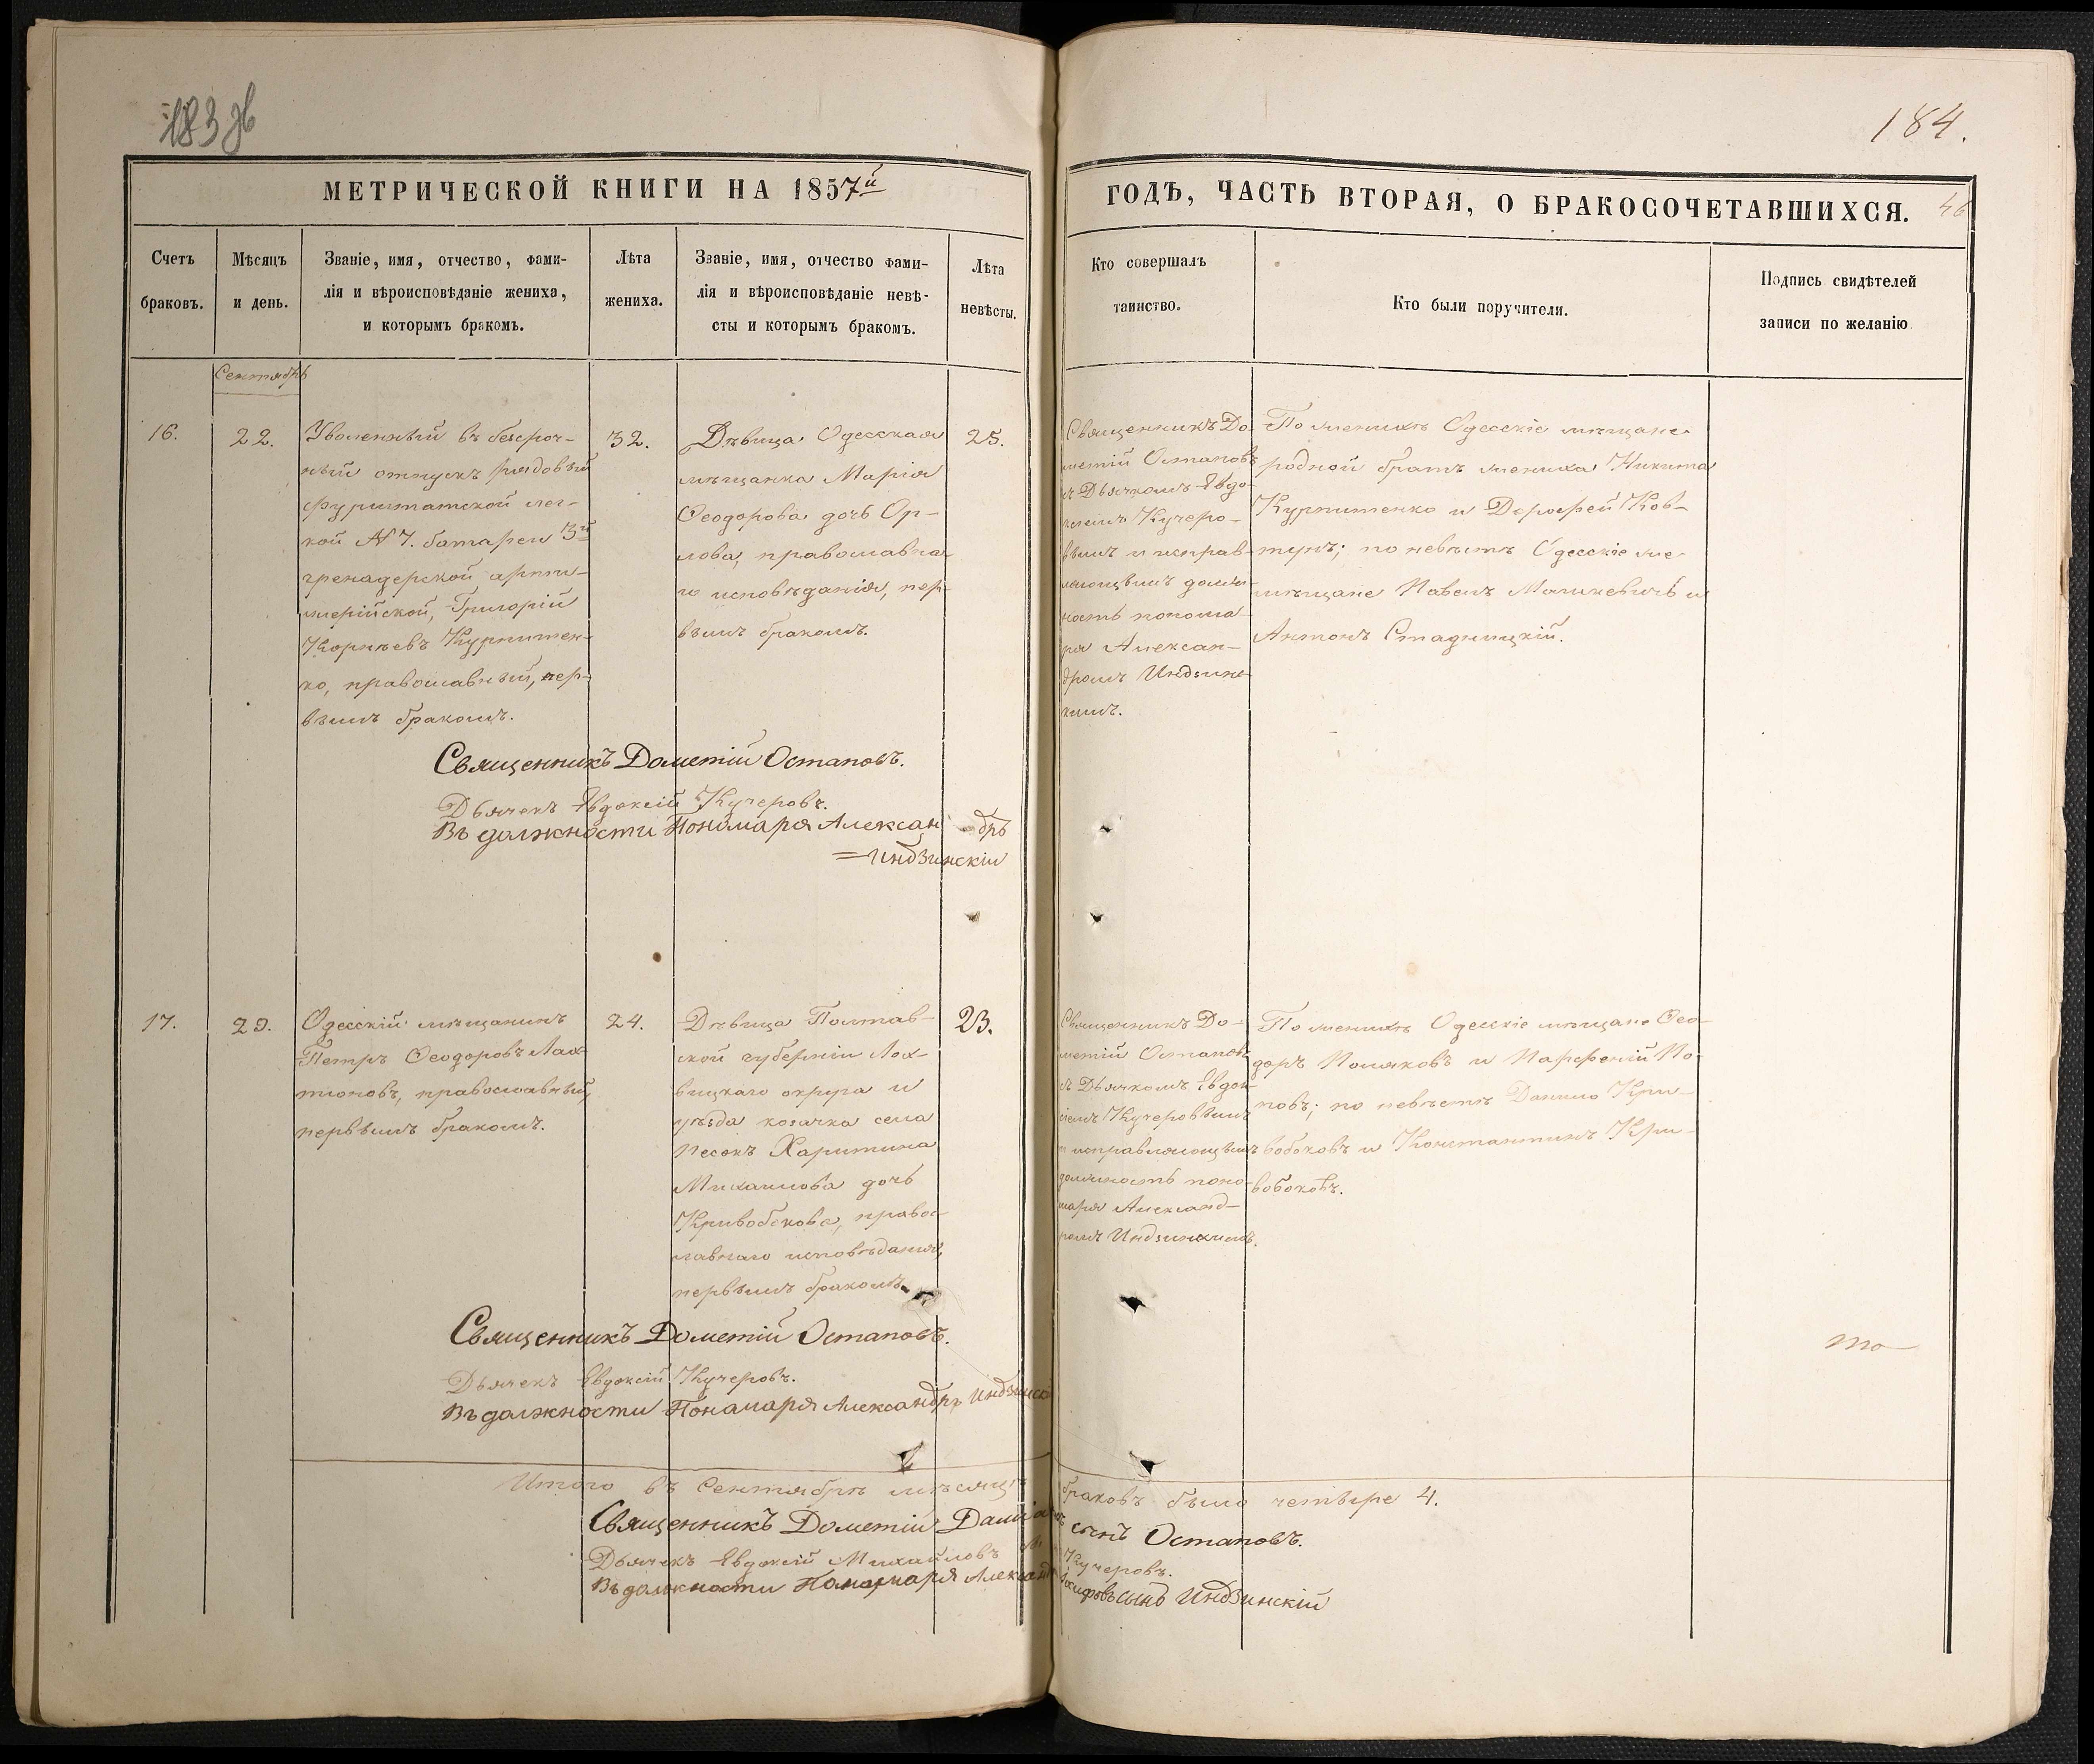 183 об
184.
МЕТРИЧЕСКОЙ КНИГИ НА 1857й
ГОДЪ, ЧАСТЬ ВТОРАЯ, О БРАКОСОЧЕТАВШИХСЯ.
46
Счетъ
браковъ.
Мѣсяцъ
и день.
Званіе, имя, отчество, фами-
лія и вѣроисповѣданіе жениха,
и которымъ бракомъ.
Лѣта
жениха.
Званіе, имя, отчество фами-
лія и вѣроисповѣданіе невѣ-
сты и которымъ бракомъ.
Лѣта
невѣсты.
Кто совершалъ
таинство.
Кто были поручители.
Подпись свидѣтелей
записи по желанію
Сентябрь
16.
22.
Уволенный въ безсроч-
ный отпускъ рядовый
Фурштатской лег-
кой № 7. батареи 3й
гренадерской арти-
лерійской, Григорій
Корнѣевъ Курпитен-
ко, православный, пер-
вымъ бракомъ.
32.
Дѣвица Одесская
мѣщанка Марія
Ѳеодорова дочь Ор-
лова, православна-
го исповѣданія, пер-
вымъ бракомъ.
25.
Священникъ До-
метій Остаповъ
съ Дьячкомъ Евдо-
кіемъ Кучеро-
вымъ и исправ-
ляющимъ долж-
ность понома-
ря Алексан-
дромъ Индзинс-
кимъ.
По женихѣ Одесскіе мѣщане
родной братъ жениха Никита
Курпитенко и Дорофей Ков-
тунъ; по невѣстѣ Одесскіе же
мѣщане Павелъ Малкевичъ и
Антонъ Стадницкій.
Священникъ Дометій Остаповъ.
Дьячекъ Евдокій Кучеровъ.
Въ должности Пономаря Александръ
=Индзинскій
17.
29.
Одесскій мѣщанинъ
Петръ Ѳеодоровъ Лах-
тіоновъ, православный,
первымъ бракомъ.
24.
Дѣвица Полтав-
ской губерніи Лох-
вицкаго округа и
уѣзда козачка села
Песокъ Харитина
Михаилова дочь
Кривобокова, право-
славнаго исповѣданія,
первымъ бракомъ.
23.
Священникъ До-
метій Остаповъ
съ Дьячкомъ Евдок-
іемъ Кучеровымъ
и исправляющимъ
должность поно-
маря Александ-
ромъ Индзинскимъ.
По женихѣ Одесскіе мѣщане Ѳео-
доръ Поляковъ и Парфеній По-
повъ; по невѣстѣ Данило Кри-
вобоковъ и Константинъ Кри-
вобоковъ.
Священникъ Дометій Остаповъ.
Дьячекъ Евдокій Кучеровъ.
Въ должности Понамаря Александръ Индзинскі
то
Итого въ Сентябрѣ мѣсяцѣ браковъ было четыре 4.
Священникъ Дометій Даміановъ сынъ Остаповъ.
Дьячекъ Евдокій Михайловъ Кучеровъ.
Въ должности Понамаря Александръ сынъ Индзинскій